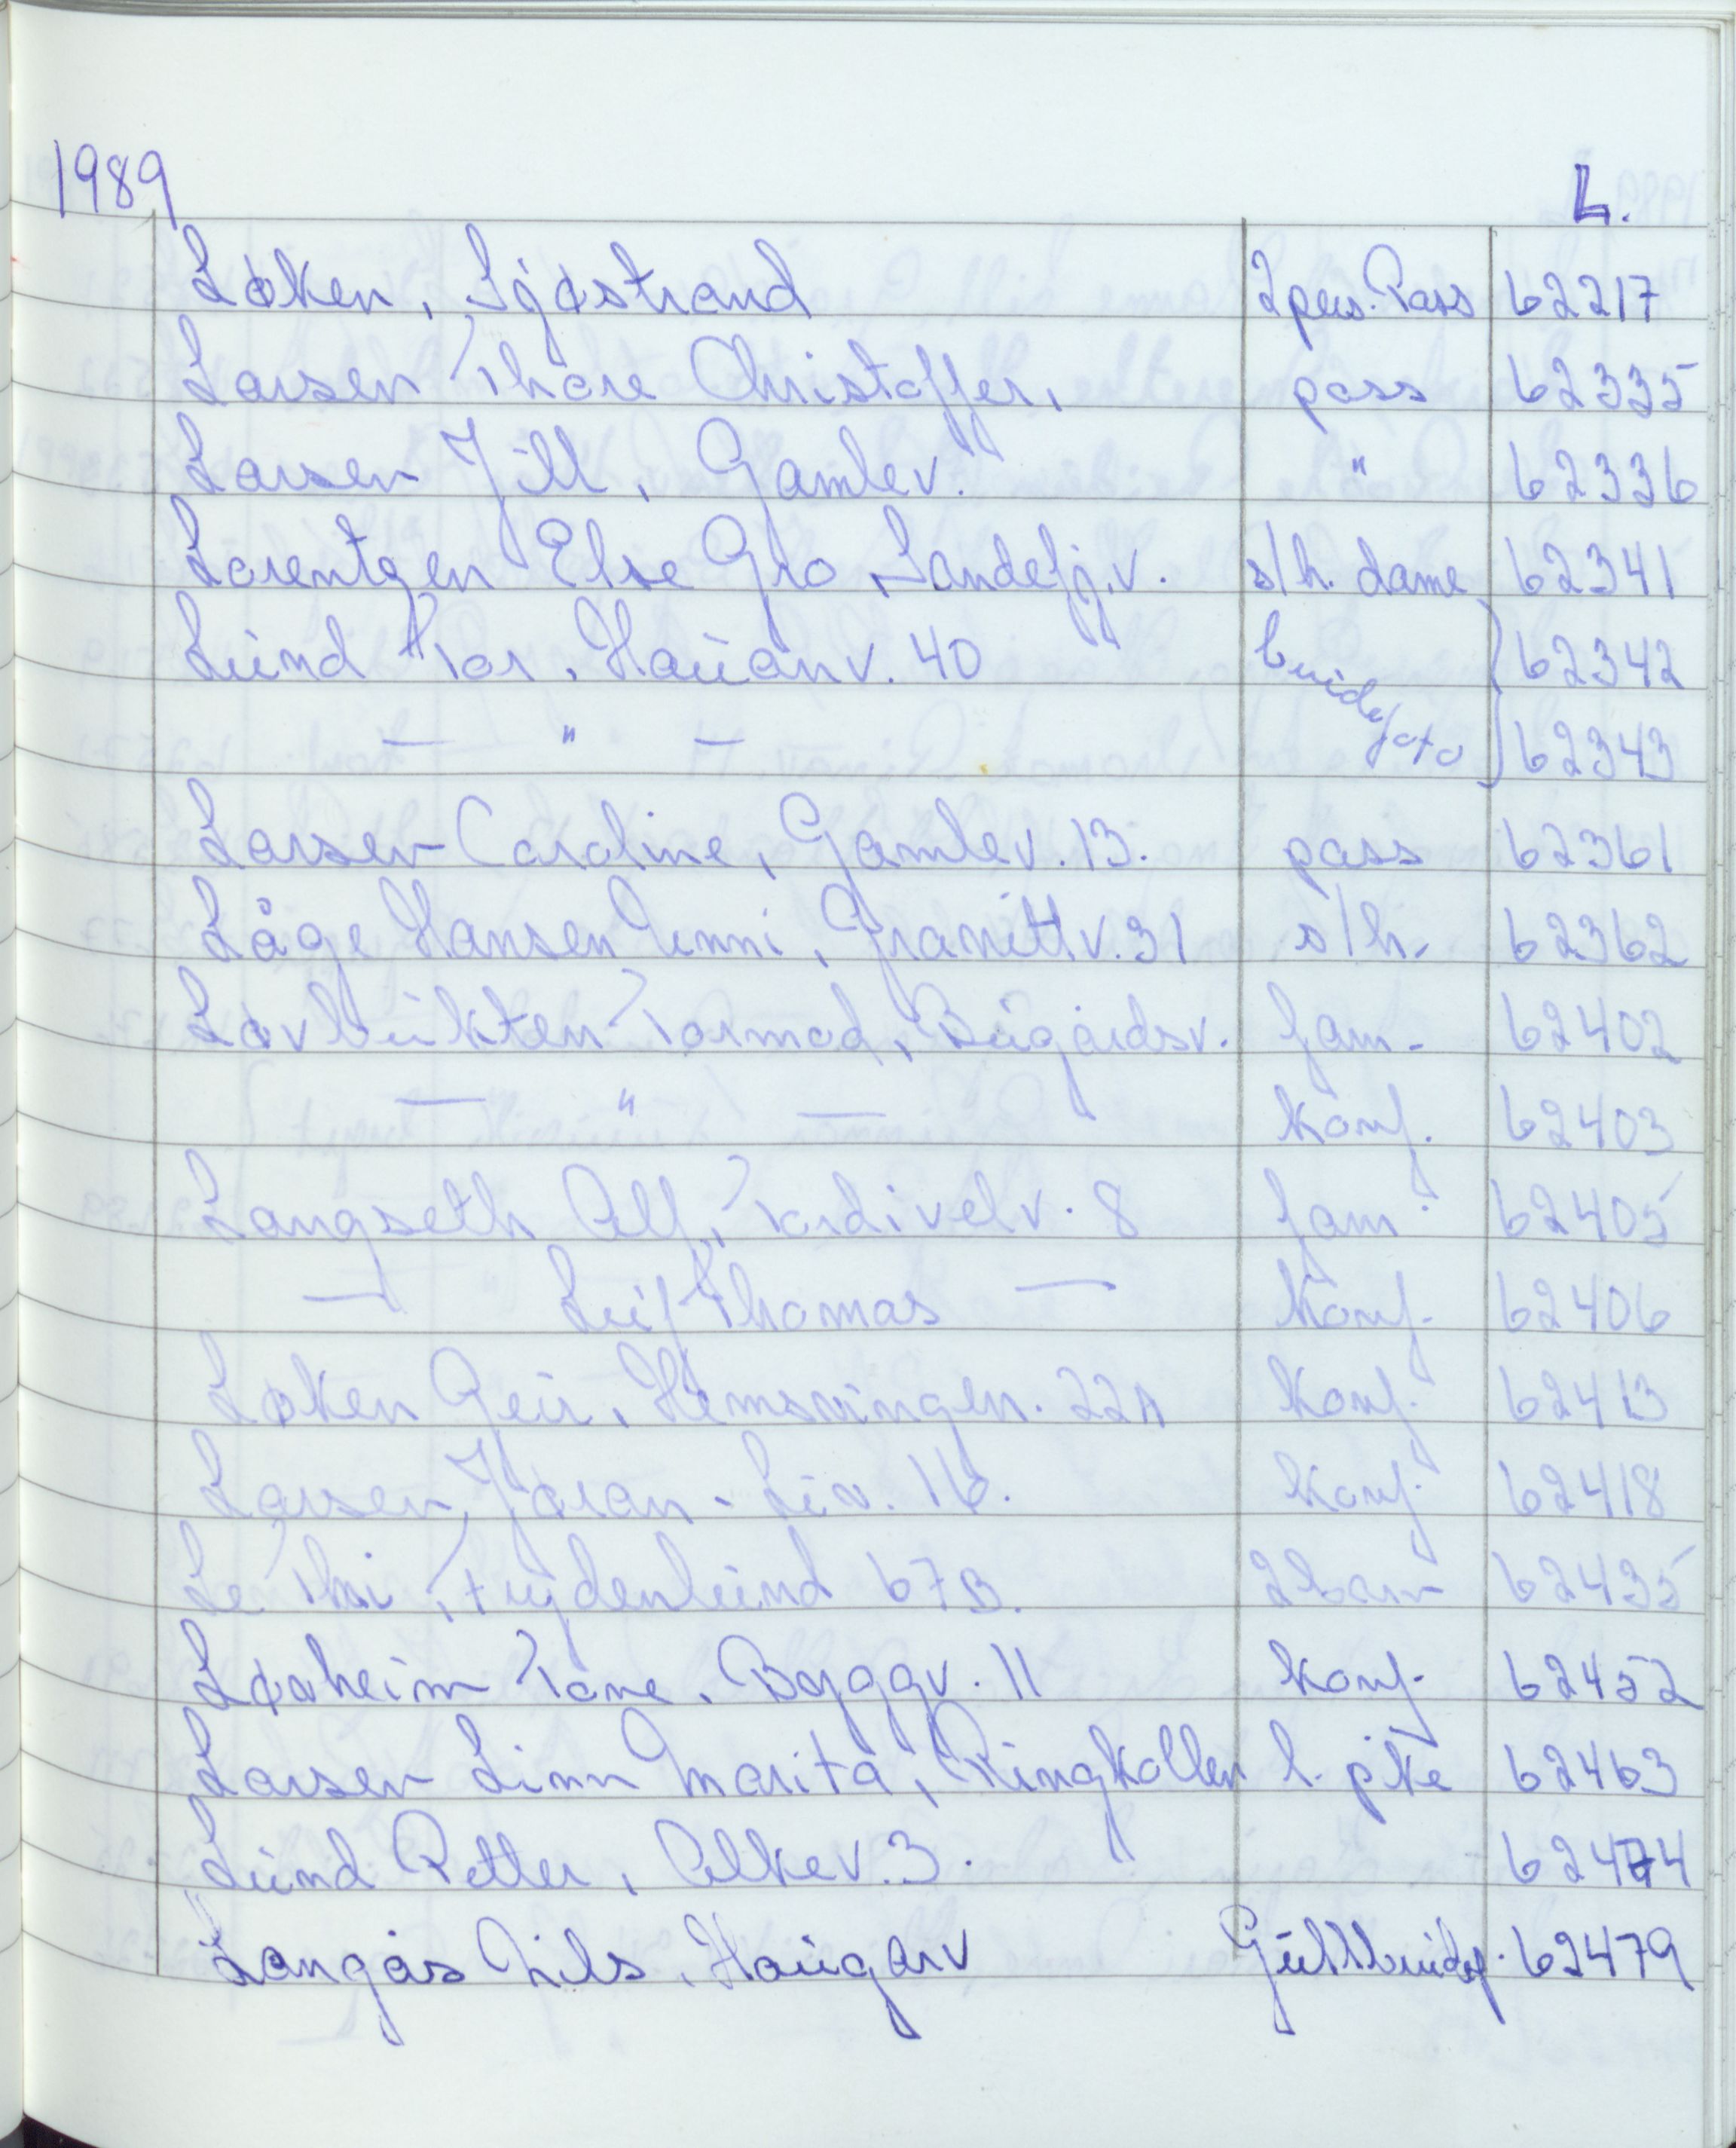 1989 L.
Løken, Sjøstrand 2 pers. Pass 62217
Larsen Thore Christoffer, pass 62335
Larsen Jill, Gamlev. " 62336
Lorentzen Else Gro, Sandefj.v. s/h. dame 62341
Lund Tor, Hauanv. 40 brudefoto 62342
— " — 62343
Larsen Caroline, Gamlev. 13. pass 62361
Låge Hansen Unni, Granittv. 31 s/h. 62362
Løvbukten Tormod, Bugårdsv. fam. 62402
— " — konf. 62403
Langseth Alf, Tordivelv. 8 fam. 62405
— Leif Thomas — konf. 62406
Løken Geir, Hemsringen. 22A konf. 62413
Larsen Jøran, Liv. 16. konf. 62418
Le Thi, Frydenlund 67B. 2 barn 62435
Løvheim Tone, Byggv. 11 konf. 62452
Larsen Linn Marita, Ringkollen l. pike 62463
Lund Petter, Alkev. 3. 62474
Langås Nils, Haugarv Gullbrudep. 62479